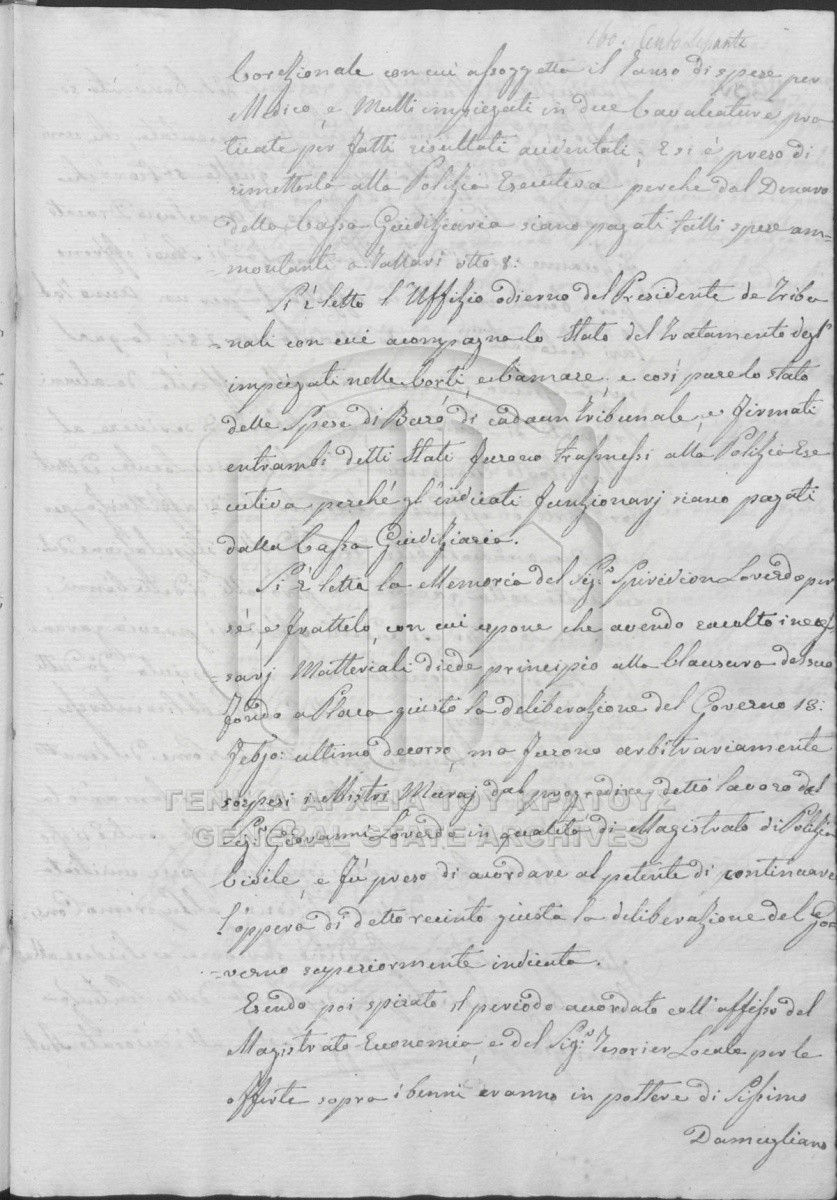 160. Centosessanta
Corezionale con cui assoggetta il Causo di spese per
Medico, e Mulli impiegati in due Cavalcature pra
ticate per fatti risultati accidentali; e si è preso di
rimetterla alla Polizia Esecutiva perche dal Denaro
della Cassa Giudiziaria siano pagati talli spese am-
montanti a Tallari otto 8:
Si è letto l'Uffizio odierno del Presidente de Tribu-
nali con cui acompagna lo Stato del Tratamento degl'
impiegati nelle Corti, e Camare, e così pure lo stato
delle Spese di Burò di cadaun Tribunale, e firmati
entrambi detti Stati furono trasmessi alla Polizia Ese
-cutiva perché gl'indicati funzionarj siano pagati
dalla Cassa Giudiziaria.
Si è letta la Memoria del Sigr Spiridion Loverdo per
sé, e frattelo, con cui espone che avendo racolto i neces
-sarj Matteriali diede principio alla Clausura del suo
fondo a Placa giusto la deliberazione del Governo 18:
Febjo: ultimo decorso, ma furono arbitrariamente
sospesi i Mistri Muraj dal progredire detto lavoro dal
Sigr Giovanni Loverdo in qualità di Magistrato di Polizia
Civile, e fù preso di acordare al petente di continuare
l'oppera di detto recinto giusta la deliberazione del Go-
-verno superiormente indicata.
Esendo poi spirato il periodo acordato coll'affisso del
Magistrato Economia, e del Sigr Tesorier Locale per le
offerte sopra i benni eranno in pottere di Sissimo
Damugliano
ΓΕΝΙΚΑ ΑΡΧΕΙΑ ΤΟΥ ΚΡΑΤΟΥΣ
GENERAL STATE ARCHIVES